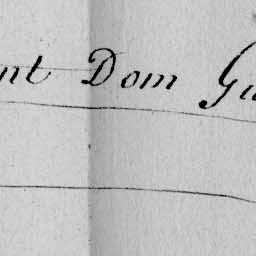 nt Dom Gu